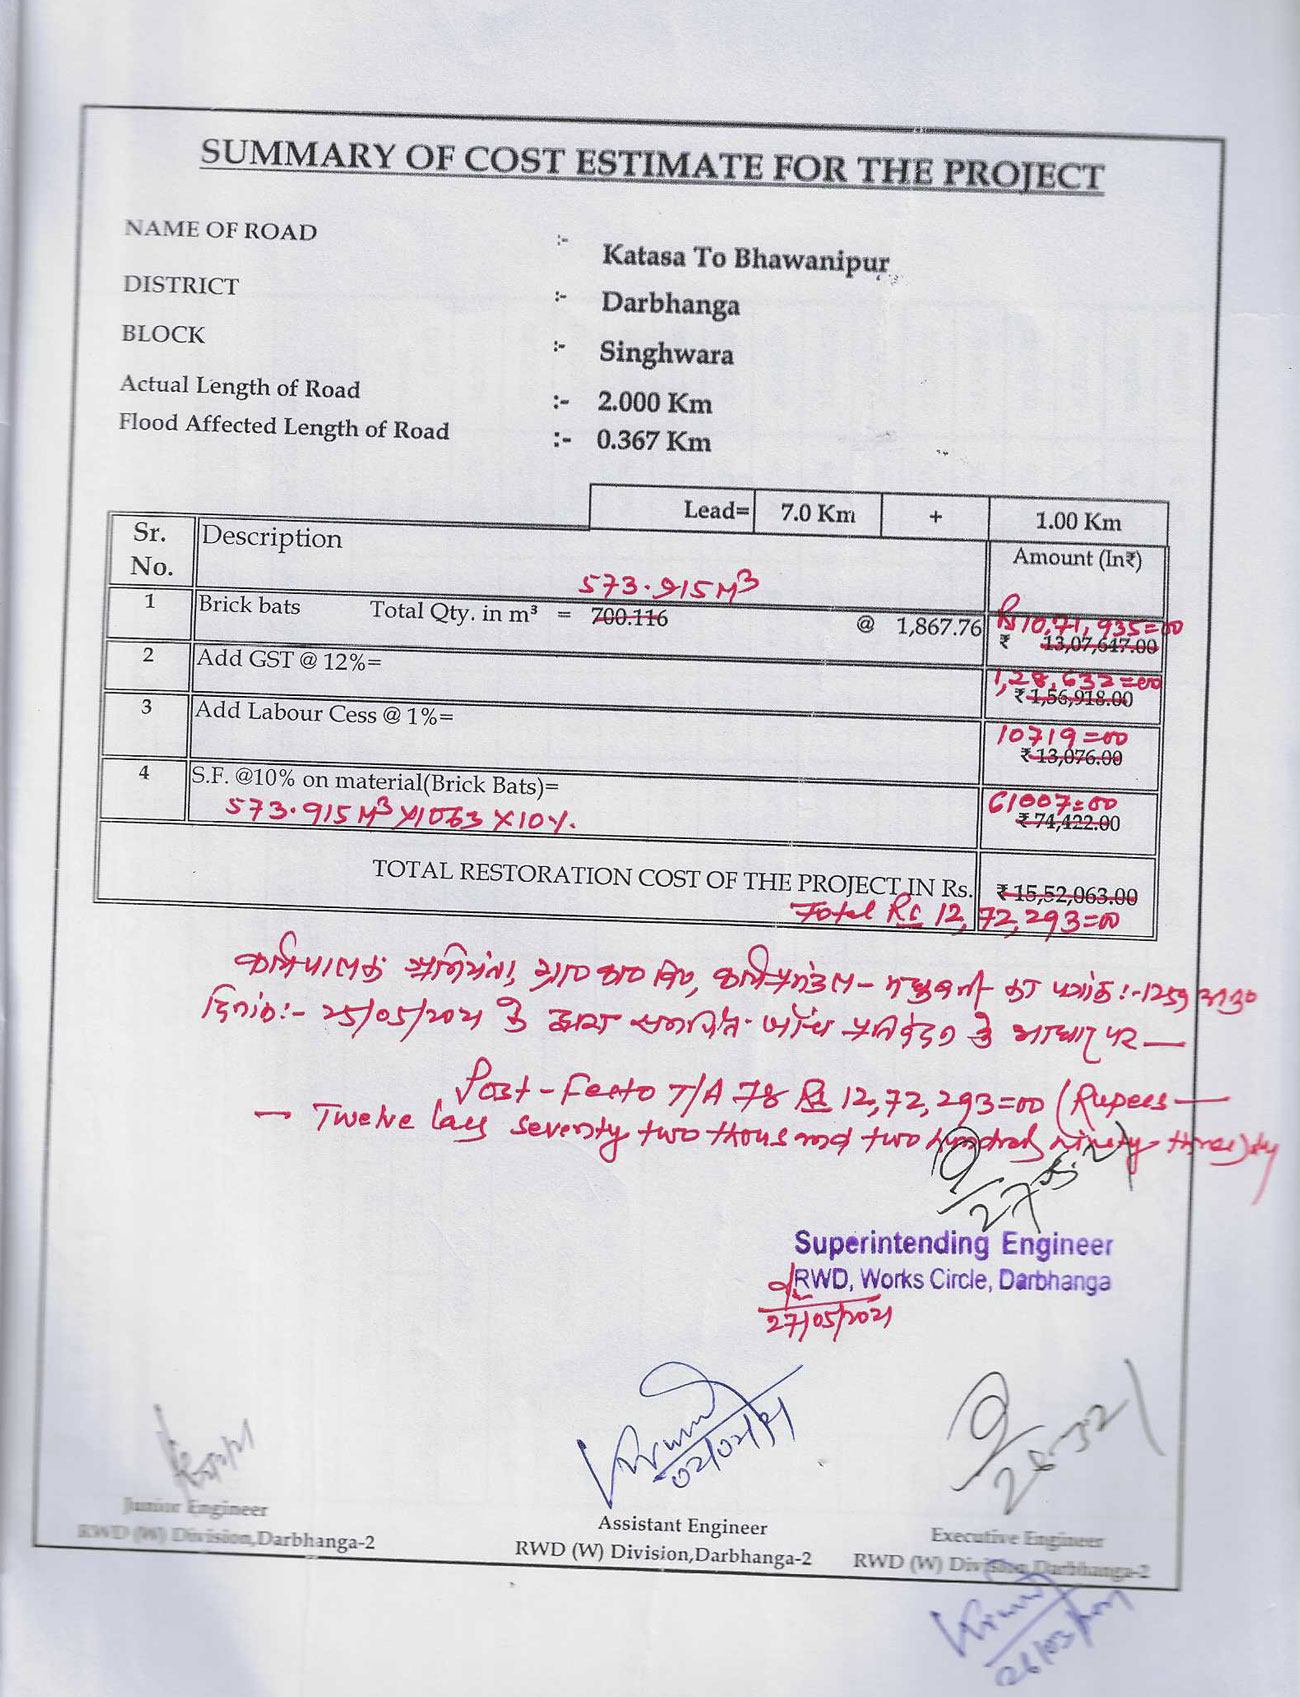 SUMMARY OF COST ESTIMATE FOR THE PROJECT
NAME OF ROAD :- Katasa To Bhawanipur
DISTRICT :- Darbhanga
BLOCK :- Singhwara
Actual Length of Road :- 2.000 Km
Flood Affected Length of Road :- 0.367 Km
Lead= 7.0 Km + 1.00 Km
Sr. No. Description Amount (In₹)
573.915 M³
1 Brick bats Total Qty. in m³ = 700.116 @ 1,867.76 Rs 10,71,935=00
₹ 13,07,647.00
2 Add GST @ 12%= 1,28,632=00
₹ 1,56,918.00
3 Add Labour Cess @ 1%= 10719=00
₹ 13,076.00
4 S.F. @10% on material(Brick Bats)= 61007=00
573.915 M³ X 1063 X 10%. ₹ 74,422.00
TOTAL RESTORATION COST OF THE PROJECT IN Rs. ₹ 15,52,063.00
Total Rs 12,72,293=00
कार्यपालक अभियंता, ग्रा० का० वि०, कार्य प्रमंडल - मधुबनी का पत्रांक :- 1259
दिनांक :- 25/05/2021 के द्वारा समर्पित जाँच प्रतिवेदन के आधार पर —
Post-Fecto T/A 78 Rs 12,72,293=00 (Rupees —
— Twelve lacs seventy two thousand two hundred ninety three) only
27
Superintending Engineer
RWD, Works Circle, Darbhanga
27/05/2021
02/02/21
26-3-21
Junior Engineer
RWD (W) Division,Darbhanga-2
Assistant Engineer
RWD (W) Division,Darbhanga-2
Executive Engineer
RWD (W) Division,Darbhanga-2
26/03/2021